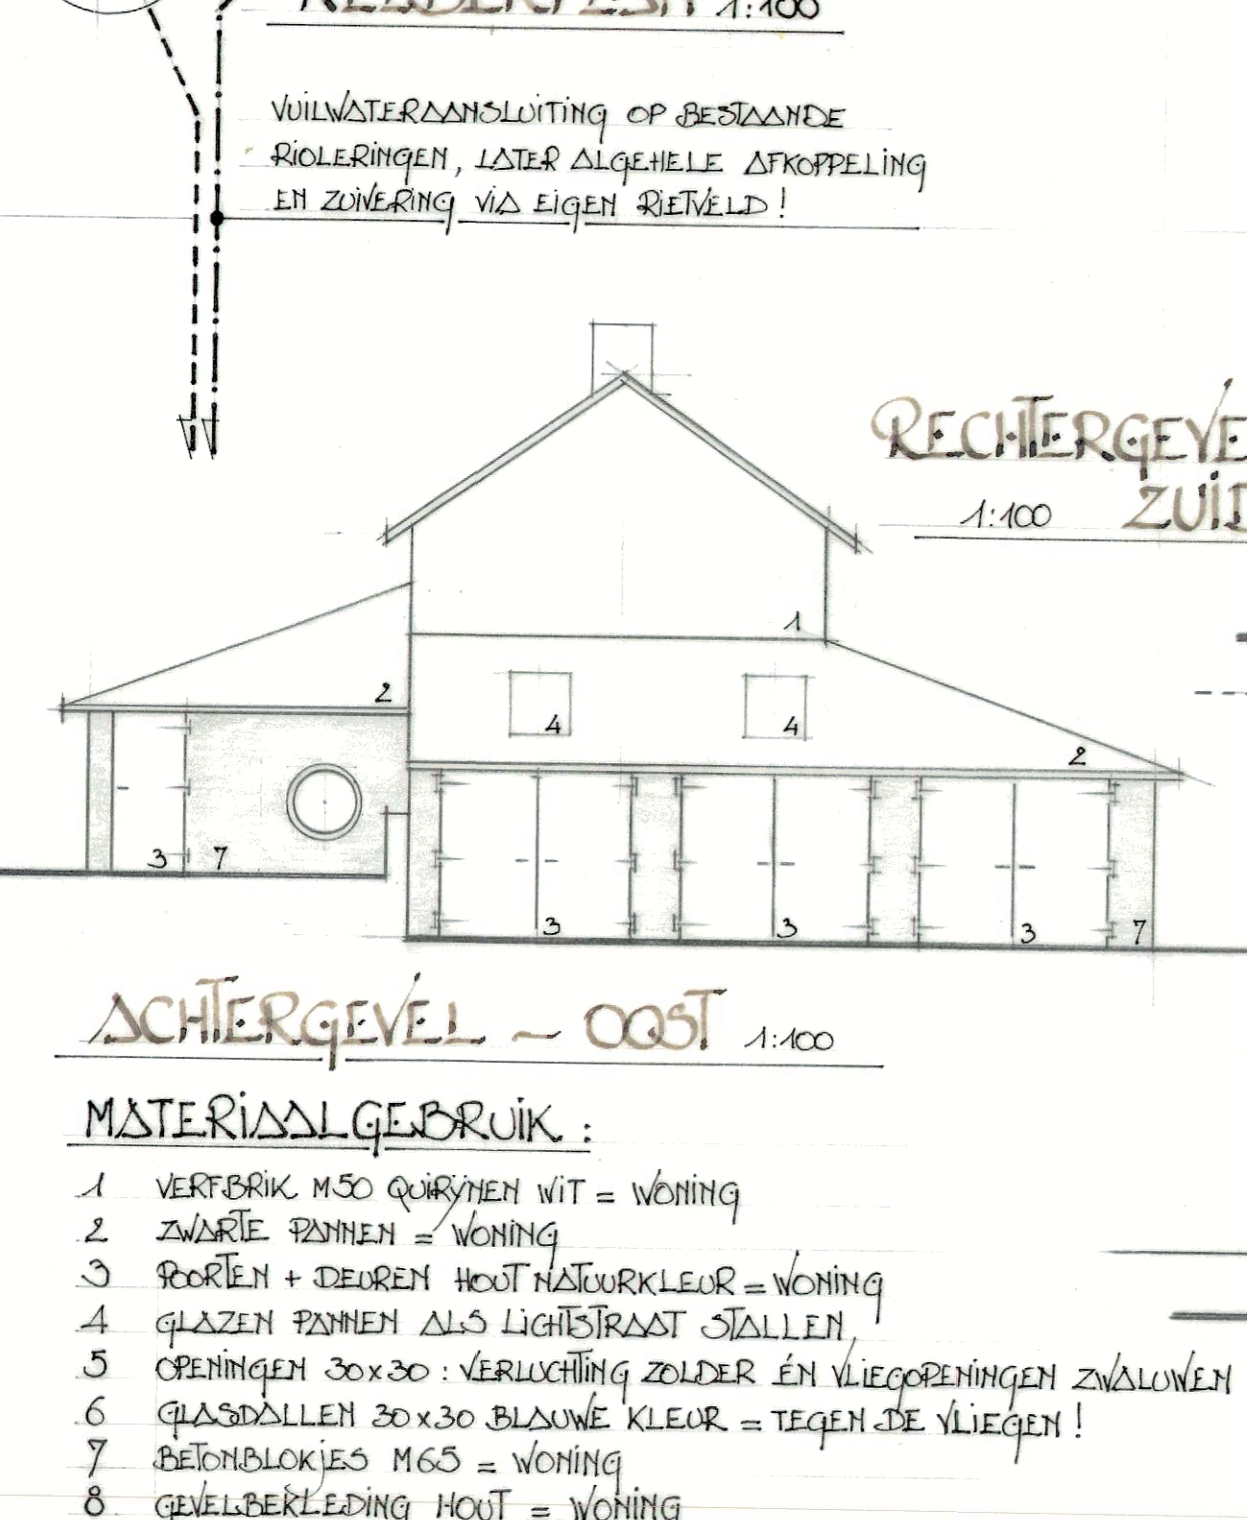 KELDERPESIL 1:100
VUILWATERAANSLUITING OP BESTAANDE
RIOLERINGEN, LATER ALGEHELE AFKOPPELING
EN ZUIVERING VIA EIGEN RIETVELD!
RECHTERGEVE
1:100 ZUID
1
2
4
4
2
3
7
3
3
3
7
ACHTERGEVEL ~ OOST 1:100
MATERIAALGEBRUIK :
1 VERFBRIK M50 QUIRYNEN WIT = WONING
2 ZWARTE PANNEN = WONING
3 POORTEN + DEUREN HOUT NATUURKLEUR = WONING
4 GLAZEN PANNEN ALS LICHTSTRAAT STALLEN,
5 OPENINGEN 30x30 : VERLUCHTING ZOLDER ÉN VLIEGOPENINGEN ZWALUWEN
6 GLASDALLEN 30x30 BLAUWE KLEUR = TEGEN DE VLIEGEN!
7 BETONBLOKJES M65 = WONING
8 GEVELBEKLEDING HOUT = WONING